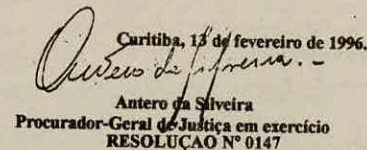 Curitiba, 13 de fevereiro de 1996.
Antero da Silveira. -
Antero da Silveira
Procurador-Geral de Justiça em exercício
RESOLUÇÃO Nº 0147